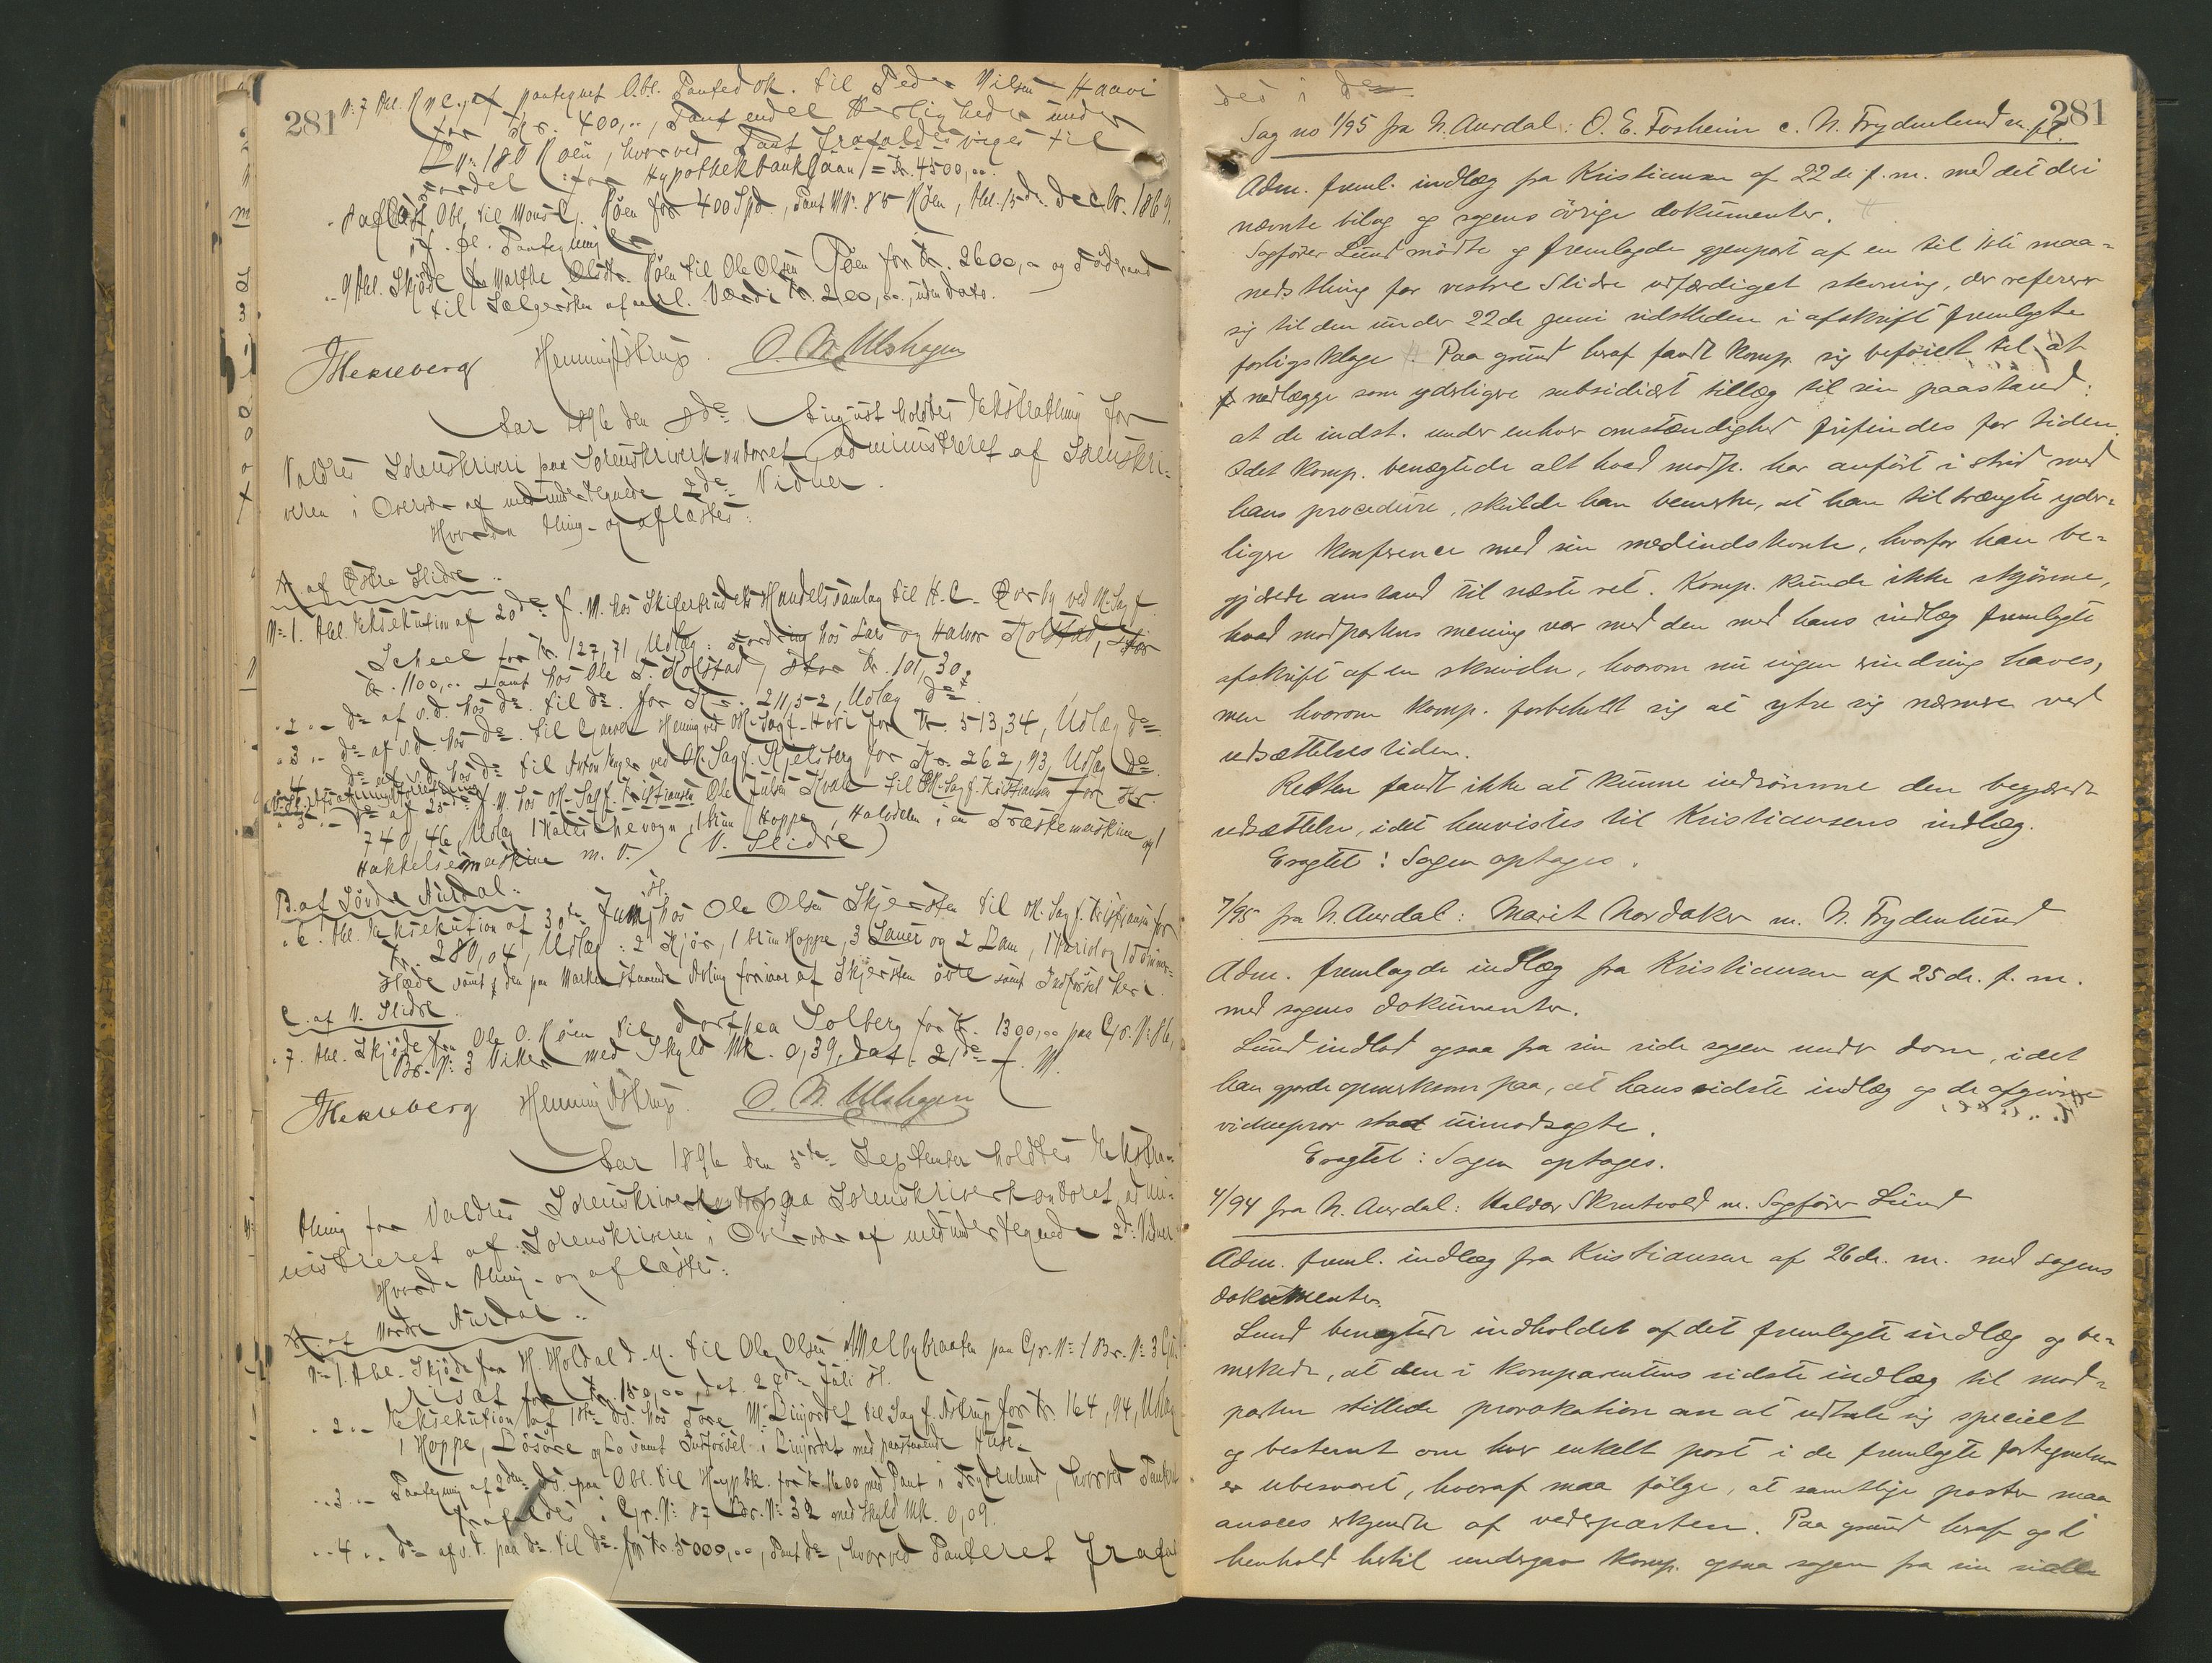 281
No 7 Abl. Kvc. af pantegnet Obl. Pantedok. til Peder Nilsen Haavi
for Kr. 400,00, Pant endel Herligheder under
No 180 Röen, hvorved Pant frafaldes viges til
fordel for Hypothekbanklaan = Kr. 4500,00.
8 aflæst Obl. til Mons L. Röen for 400 Spd., Pant M No 85 Röen, Abl. 15de Decbr. 1869,
if. fl. Pantegning
9 Abl. Skjöde fra Marthe Olsdtr. Röen til Ole Olsen Röen for Kr. 2600,00 og Födraad
til Sælgersken af aarl. Værdi Kr. 200,00, uden Dato.
Henning Astrup. O. N. Ulshagen
Aar 1896 den 8de August holdtes Ekstrathing for
Valdres Sorenskriveri paa Sorenskriverkontoret administreret af Sorenskri-
veren i Overvær af medundertegnede 2de Vidner.
Hvorda thing- og aflæstes:
A. af Östre Slidre:
No 1. Abl. Eksekution af 20de f. M. hos Skiferbrudets Handelssamlag til H. C. Örby ved O.-Sagf.
Scheel for Kr. 127,71, Udlæg: Fordring hos Lars og Halvor Rolstad, stor
Kr. 1100,00 samt hos Ole T. Rolstad, stor Kr. 101,30.
" 2 " do af s.d. hos do til do for Kr. 211,52, Udlæg do
" 3 " do af s.d. hos do til Garver Henning ved O.-Sagf. Hovi for Kr. 513,34, Udlæg do
" 4 " do af s.d. hos do til Anton ved O.-Sagf. Kjelsberg for Kr. 262,93, Udlæg do.
" 5 " do af 25de f. M. hos O.-Sagf. Kristiansen Ole Julsen Kvale til O.-Sagf. Kristiansen for Kr.
740,46, Udlæg 1 Kalleschevogn, 1 brun Hoppe, Halvdelen i en Træskemaskine og 1
Hakkelsesmaskine m. v. (V. Slidre)
B. af Söndre Aurdal:
" 6. Abl. Eksekution af 30te Juni sl. hos Ole Olsen Skjersten til O.-Sagf. Kristiansen for
Kr. 280,04, Udlæg: 2 Kjör, 1 brun Hoppe, 3 Sauer og 2 Lam, 1 Kariol og 1 Tömmer-
slæde samt den paa Marken staaende Avling foriaar af Skjersten övre samt Indförsel heri.
C. af V. Slidre.
" 7. Abl. Skjöde fra Ole O. Röen til Dorthea Solberg for Kr. 1300,00 paa Gr. No 86,
Br. No 3 Viken med Skyld Mk. 0,39, dat. 21de f. M.
Henning Astrup. O. N. Ulshagen
Aar 1896 den 5te September holdtes Ekstra-
thing for Valdres Sorenskriveri paa Sorenskriverkontoret, admi-
nistreret af Sorenskriveren i Overvær af medundertegnede 2de Vidner
Hvorda thing- og aflæstes:
A af Nordre Aurdal:
No 1. Abl. Skjöde fra H. Holdal d. y. til Ole Olsen Melbybraaten paa Gr. No 1 Br. No 3
for Kr. 150,00, dat. 20de Juli sl.
" 2 " Eksekution af 1ste ds. hos Tore M. Linjordet til Sagf. Astrup for Kr. 164,94, Udlæg
1 Hoppe, Lösöre og Lo samt Indförsel i Linjordet med paastaaende Huse.
" 3 " Pantegning af 2den ds. paa Obl. til Hypbk. for Kr. 1600 med Pant i Frydenlund, hvorved Pantet
frafaldes i Gr. No 87 Br. No 32 med Skyld Mk. 0,09.
" 4 " do af s.d. paa do til do for Kr. 5000,00, Pant do, hvorved Panteret frafal
281
des i do.
Sag no 1/95 fra N. Aurdal: O. E. Fosheim c. N. Frydenlund m. fl.
Adm. freml. indlæg fra Kristiansen af 22de f. m. med det deri
nævnte bilag og sagens övrige dokumenter.
Sagförer Lund mödte og fremlagde gjenpart af en til iste maa-
nedsthing for vestre Slidre udfærdiget stevning, der refererer
sig til den under 22de juni sidstleden i afskrift fremlagte
forligsklage. Paa grund heraf fandt komp. sig beföiet til at
nedlægge som yderligere subsidiært tillæg til sin paastand:
at de indst. under enhver omstændighed frifindes for tiden.
Idet komp. benægtede alt hvad modp. har anfört i strid med
hans procedure, skulde han bemerke, at han tiltrængte yder-
ligere konference med sin medindstevnte, hvorfor han be-
gjærede anstand til næste ret. Komp. kunde ikke skjönne,
hvad modpartens mening var med den med hans indlæg fremlagte
afskrift af en skrivelse, hvorom nu ingen erindring haves,
men hvorom komp. forbeholdt sig at ytre sig nærmere ved
udsættelsestiden.
Retten fandt ikke at kunne indrömme den begjærede
udsættelse, idet henvistes til Kristiansens indlæg.
Eragtet: Sagen optages.
7/95 fra N. Aurdal: Marit Nordaker m. N. Frydenlund
Adm. fremlagde indlæg fra Kristiansen af 25de f. m.
med sagens dokumenter.
Lund indlod ogsaa fra sin side sagen under dom, idet
han gjorde opmerksom paa, at hans sidste indlæg og de afgivne
vidneprov stod uimodsagte.
Eragtet: Sagen optages.
4/94 fra N. Aurdal: Haldor Skrutvold m. Sagförer Lund
Adm. freml. indlæg fra Kristiansen af 26de f. m. med sagens
dokumenter.
Lund benegtede indholdet af det fremlagte indlæg og be-
merkede, at den i komparentens sidste indlæg til mod-
parten stillede provokation om at udtale sig specielt
og bestemt om hver enkelt post i de fremlagte fortegnelser
er ubesvaret, hvoraf maa fölge, at samtlige poster maa
ansees erkjendte af vedeparten. Paa grund heraf og i
henhold hertil undergav komp. ogsaa sagen fra sin side